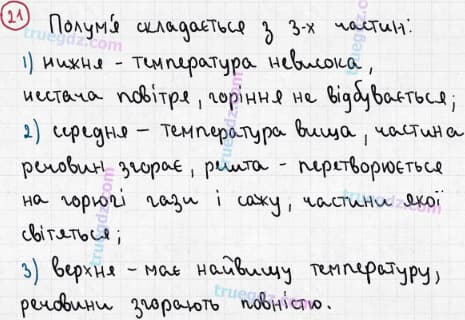 21 Полум'я складається з 3-х частин:
1) нижня - температура невисока,
нестача повітря, горіння не відбувається;
2) середня - температура вища, частина
речовин згорає, решта - перетворюється
на горючі гази і сажу, частини якої
світяться;
3) верхня - має найвищу температуру,
речовини згорають повністю.
truegdz.com
truegdz.com
truegdz.com
truegdz.com
truegdz.com
truegdz.com